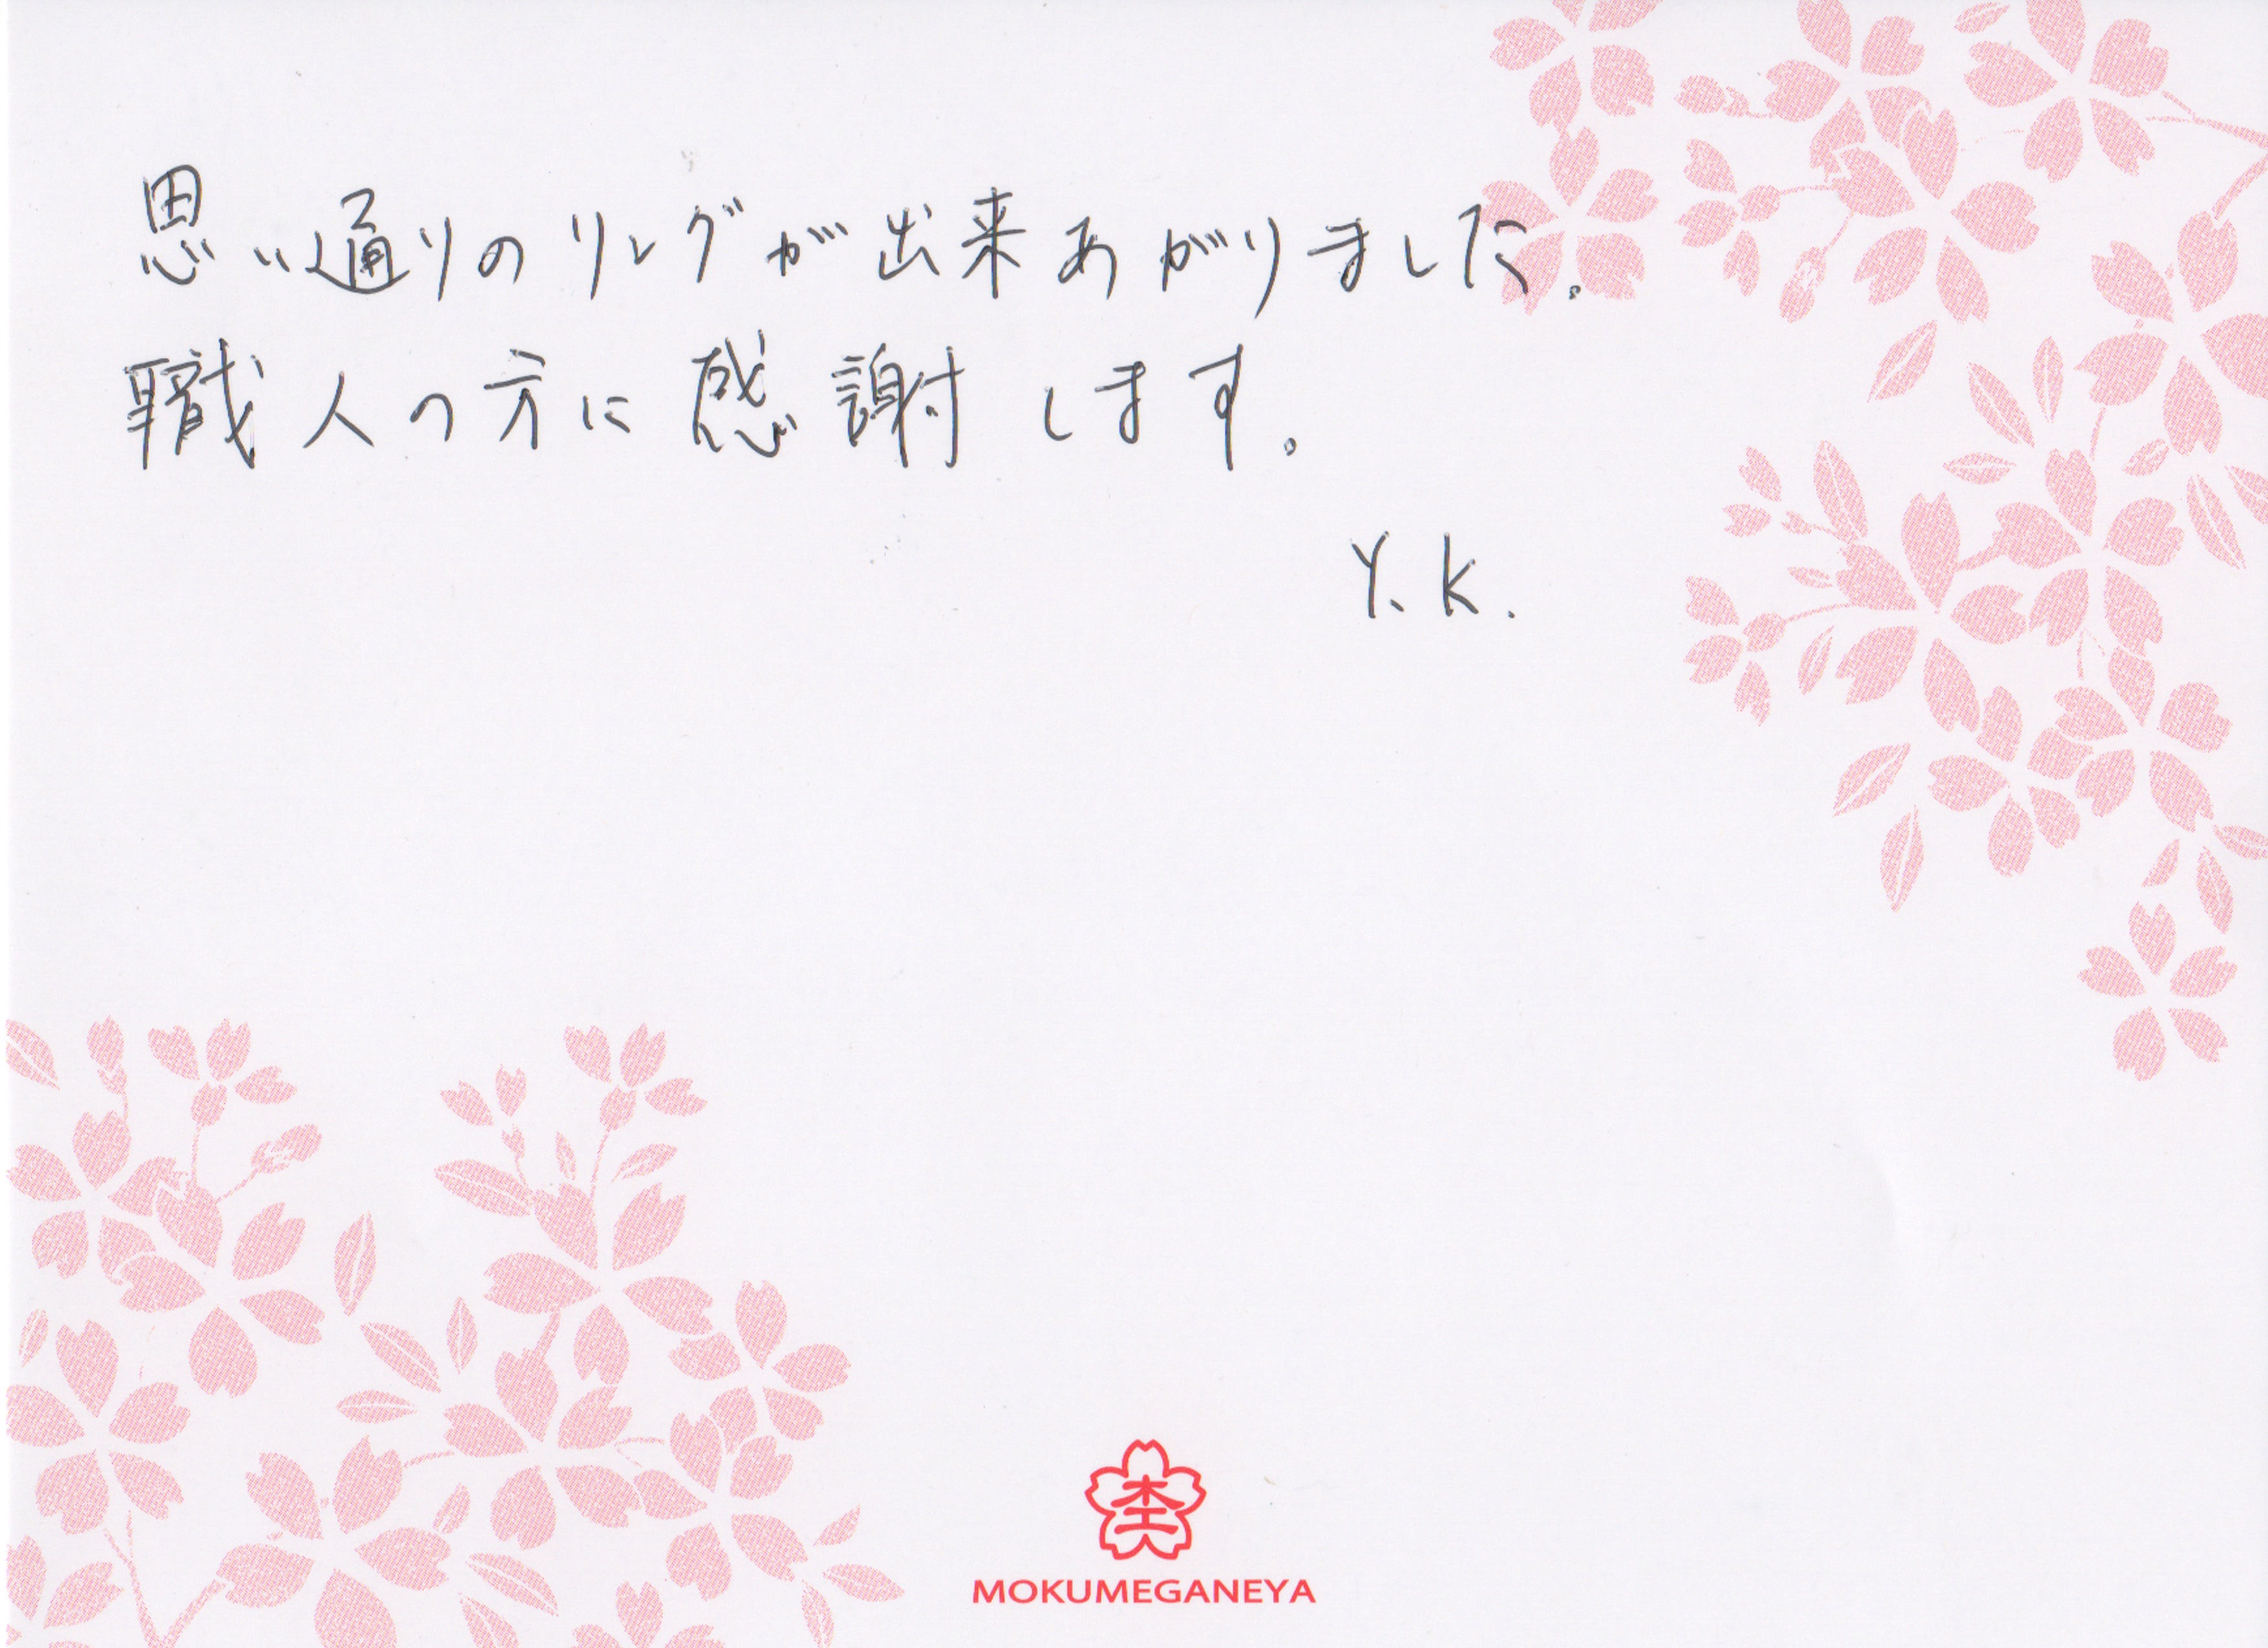 思い通りのリングが出来あがりました。
職人の方に感謝します。
Y.K.
MOKUMEGANEYA